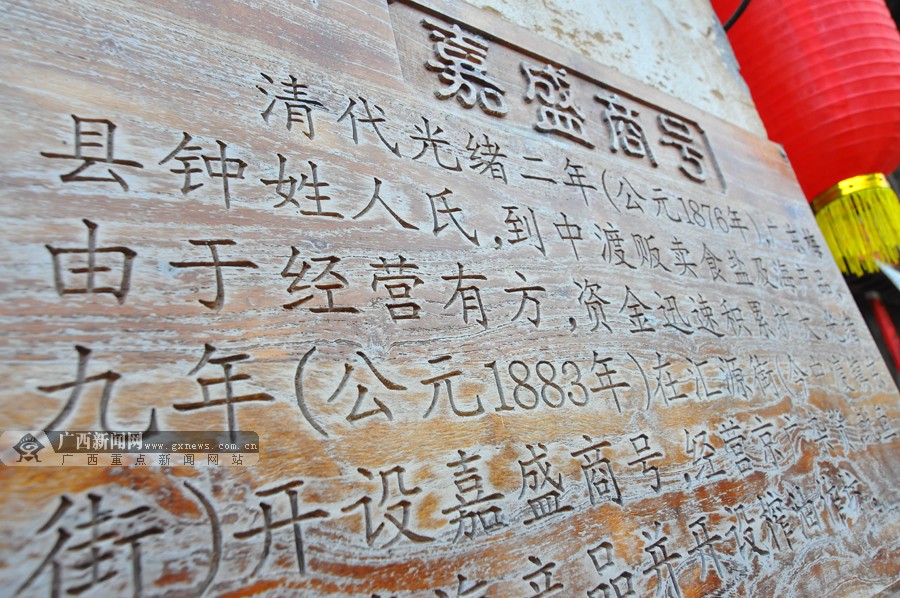 嘉盛商号
清代光绪二年(公元1876年),广东
县钟姓人氏,到中渡贩卖食盐及海产品
由于经营有方,资金迅速积累
九年(公元1883年)在汇源街(今
街)开设嘉盛商号,经营京
产品并开设榨油作坊。
广西新闻网 www.gxnews.com.cn
广西重点新闻网站